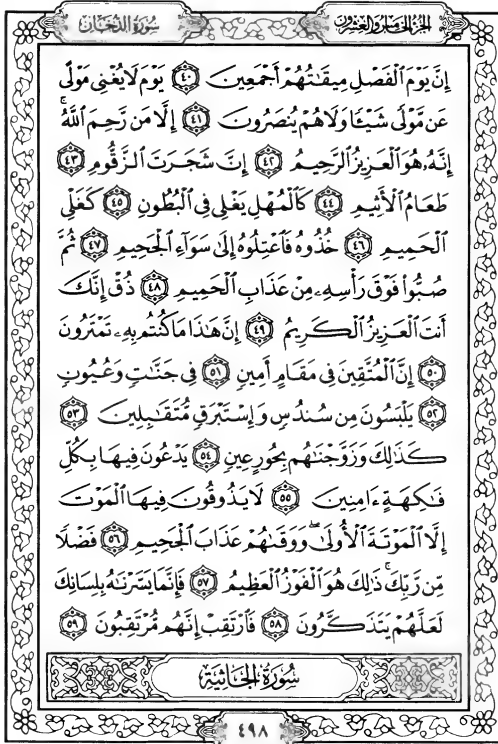 سُورَةُ الدُّخَانِ
الجزء الخامس والعشرون
إِنَّ يَوْمَ ٱلْفَصْلِ مِيقَٰتُهُمْ أَجْمَعِينَ ٤٠ يَوْمَ لَا يُغْنِى مَوْلًى
عَن مَّوْلًى شَيْـًٔا وَلَا هُمْ يُنصَرُونَ ٤١ إِلَّا مَن رَّحِمَ ٱللَّهُ ۚ
إِنَّهُۥ هُوَ ٱلْعَزِيزُ ٱلرَّحِيمُ ٤٢ إِنَّ شَجَرَتَ ٱلزَّقُّومِ ٤٣
طَعَامُ ٱلْأَثِيمِ ٤٤ كَٱلْمُهْلِ يَغْلِى فِى ٱلْبُطُونِ ٤٥ كَغَلْىِ
ٱلْحَمِيمِ ٤٦ خُذُوهُ فَٱعْتِلُوهُ إِلَىٰ سَوَآءِ ٱلْجَحِيمِ ٤٧ ثُمَّ
صُبُّوا۟ فَوْقَ رَأْسِهِۦ مِنْ عَذَابِ ٱلْحَمِيمِ ٤٨ ذُقْ إِنَّكَ
أَنتَ ٱلْعَزِيزُ ٱلْكَرِيمُ ٤٩ إِنَّ هَٰذَا مَا كُنتُم بِهِۦ تَمْتَرُونَ
٥٠ إِنَّ ٱلْمُتَّقِينَ فِى مَقَامٍ أَمِينٍ ٥١ فِى جَنَّٰتٍ وَعُيُونٍ
٥٢ يَلْبَسُونَ مِن سُندُسٍ وَإِسْتَبْرَقٍ مُّتَقَٰبِلِينَ ٥٣
كَذَٰلِكَ وَزَوَّجْنَٰهُم بِحُورٍ عِينٍ ٥٤ يَدْعُونَ فِيهَا بِكُلِّ
فَٰكِهَةٍ ءَامِنِينَ ٥٥ لَا يَذُوقُونَ فِيهَا ٱلْمَوْتَ
إِلَّا ٱلْمَوْتَةَ ٱلْأُولَىٰ ۖ وَوَقَىٰهُمْ عَذَابَ ٱلْجَحِيمِ ٥٦ فَضْلًا
مِّن رَّبِّكَ ۚ ذَٰلِكَ هُوَ ٱلْفَوْزُ ٱلْعَظِيمُ ٥٧ فَإِنَّمَا يَسَّرْنَٰهُ بِلِسَانِكَ
لَعَلَّهُمْ يَتَذَكَّرُونَ ٥٨ فَٱرْتَقِبْ إِنَّهُم مُّرْتَقِبُونَ ٥٩
سُورَةُ الجَاثِيَةِ
٤٩٨